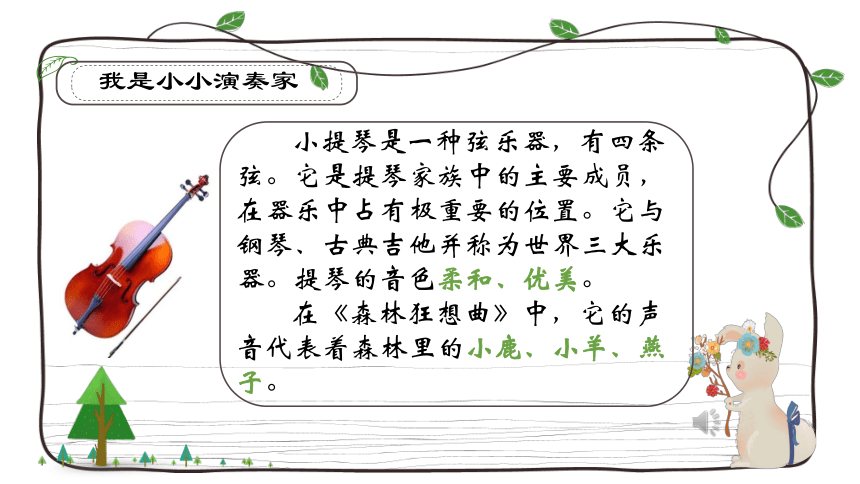 我是小小演奏家
小提琴是一种弦乐器，有四条
弦。它是提琴家族中的主要成员，
在器乐中占有极重要的位置。它与
钢琴、古典吉他并称为世界三大乐
器。提琴的音色柔和、优美。
在《森林狂想曲》中，它的声
音代表着森林里的小鹿、小羊、燕
子。